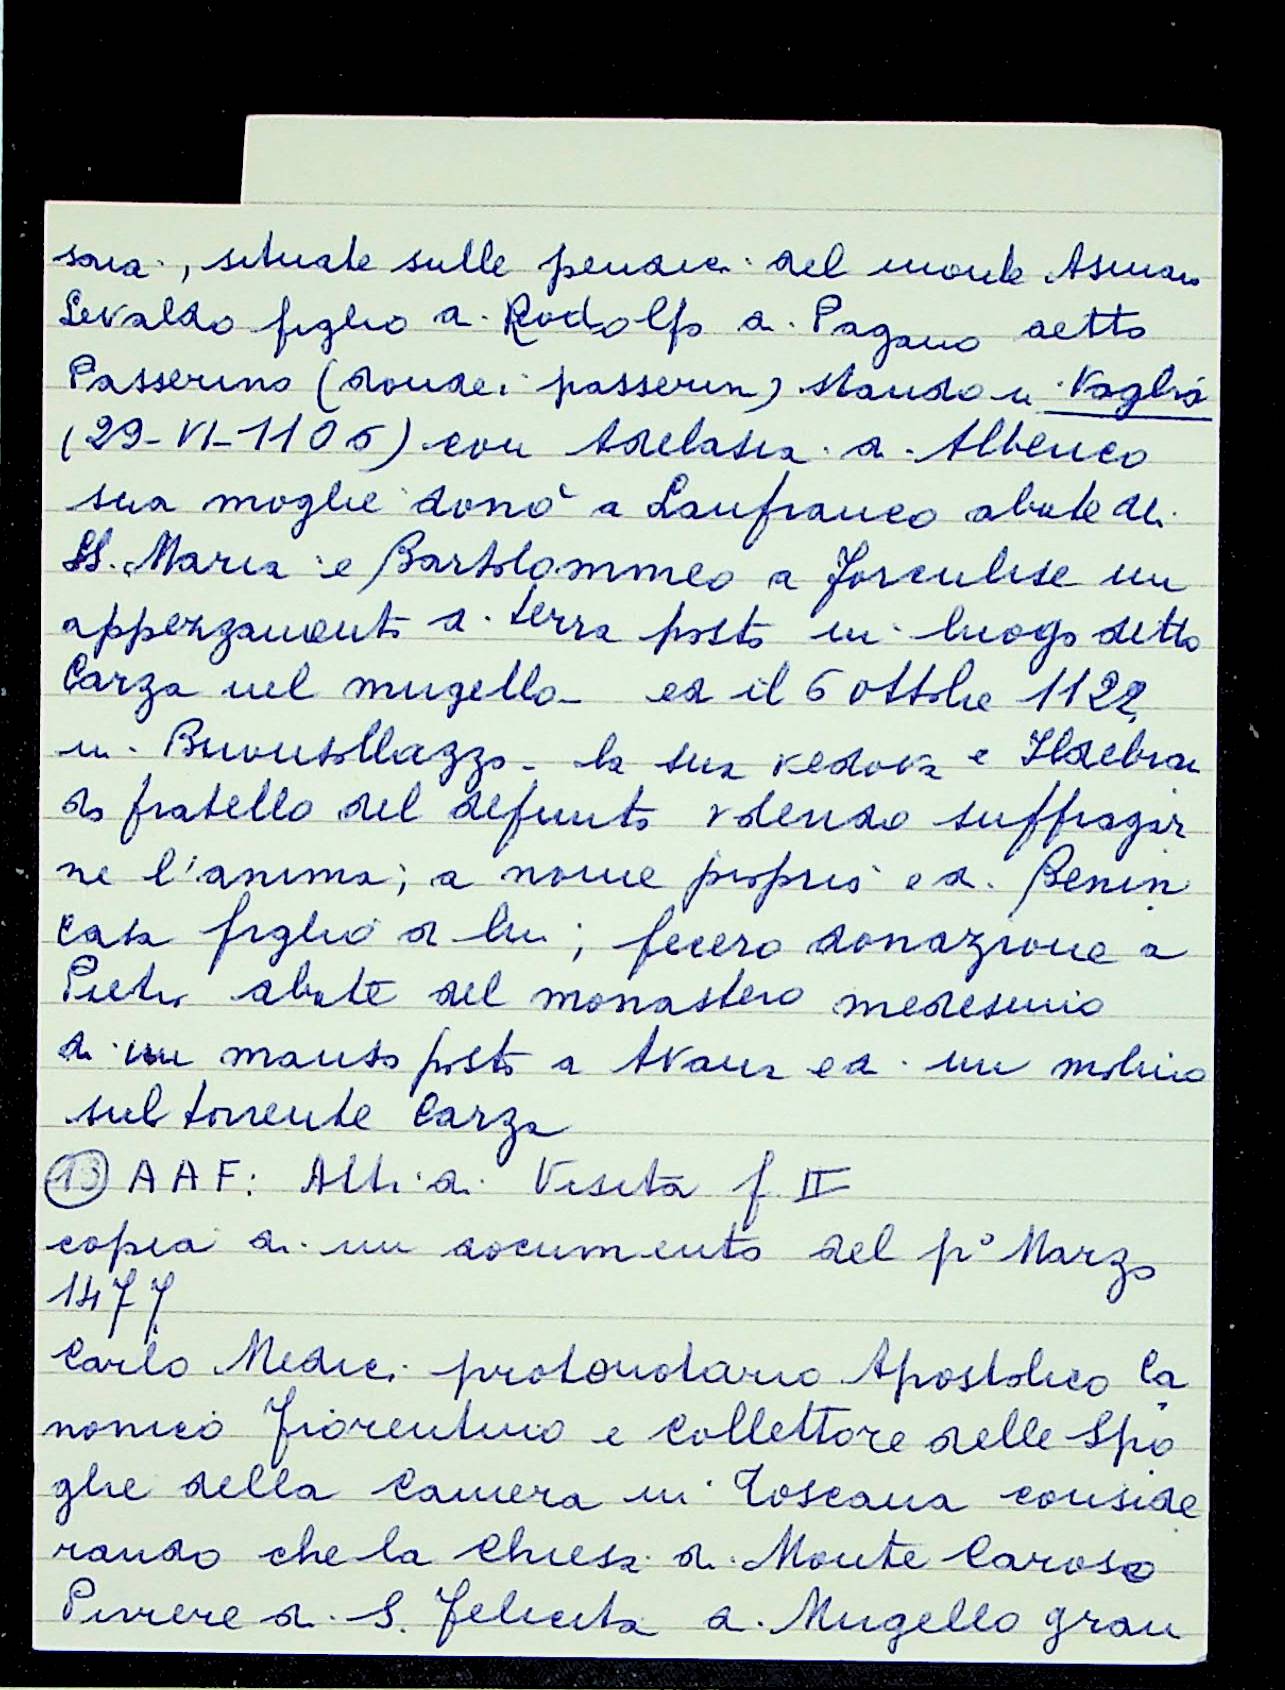 soia, situate sulle pendici del monte Asinaio
Sevaldo figlio di Rodolfo di Pagano detto
Passerino (donde i passerin) stando in Vaglia
(29-VI-1106) con Adelasia di Alberico
sua moglie donò a Lanfranco abate di
SS. Maria e Bartolommeo a Forculise un
appezzamento di terra posto in luogo detto
Carza nel mugello- ed il 6 ottobre 1122
in Buonsollazzo- la sua vedova e Ildebran
do fratello del defunto volendo suffragar
ne l'anima; a nome proprio e di Benin
casa figlio di lui; fecero donazione a
Pietro abate del monastero medesimo
di un manso posto a Avana e di un molino
sul torrente Carza
(13) AAF: Atti di Visita f. II
copia di un documento del p° Marzo
1477
Carlo Medici protonotario Apostolico Ca
nonico Fiorentino e Collettore delle Spo
glie della Camera in Toscana conside
rando che la Chiesa di Monte Caroso
Piviere di S. Felicita a Mugello gran